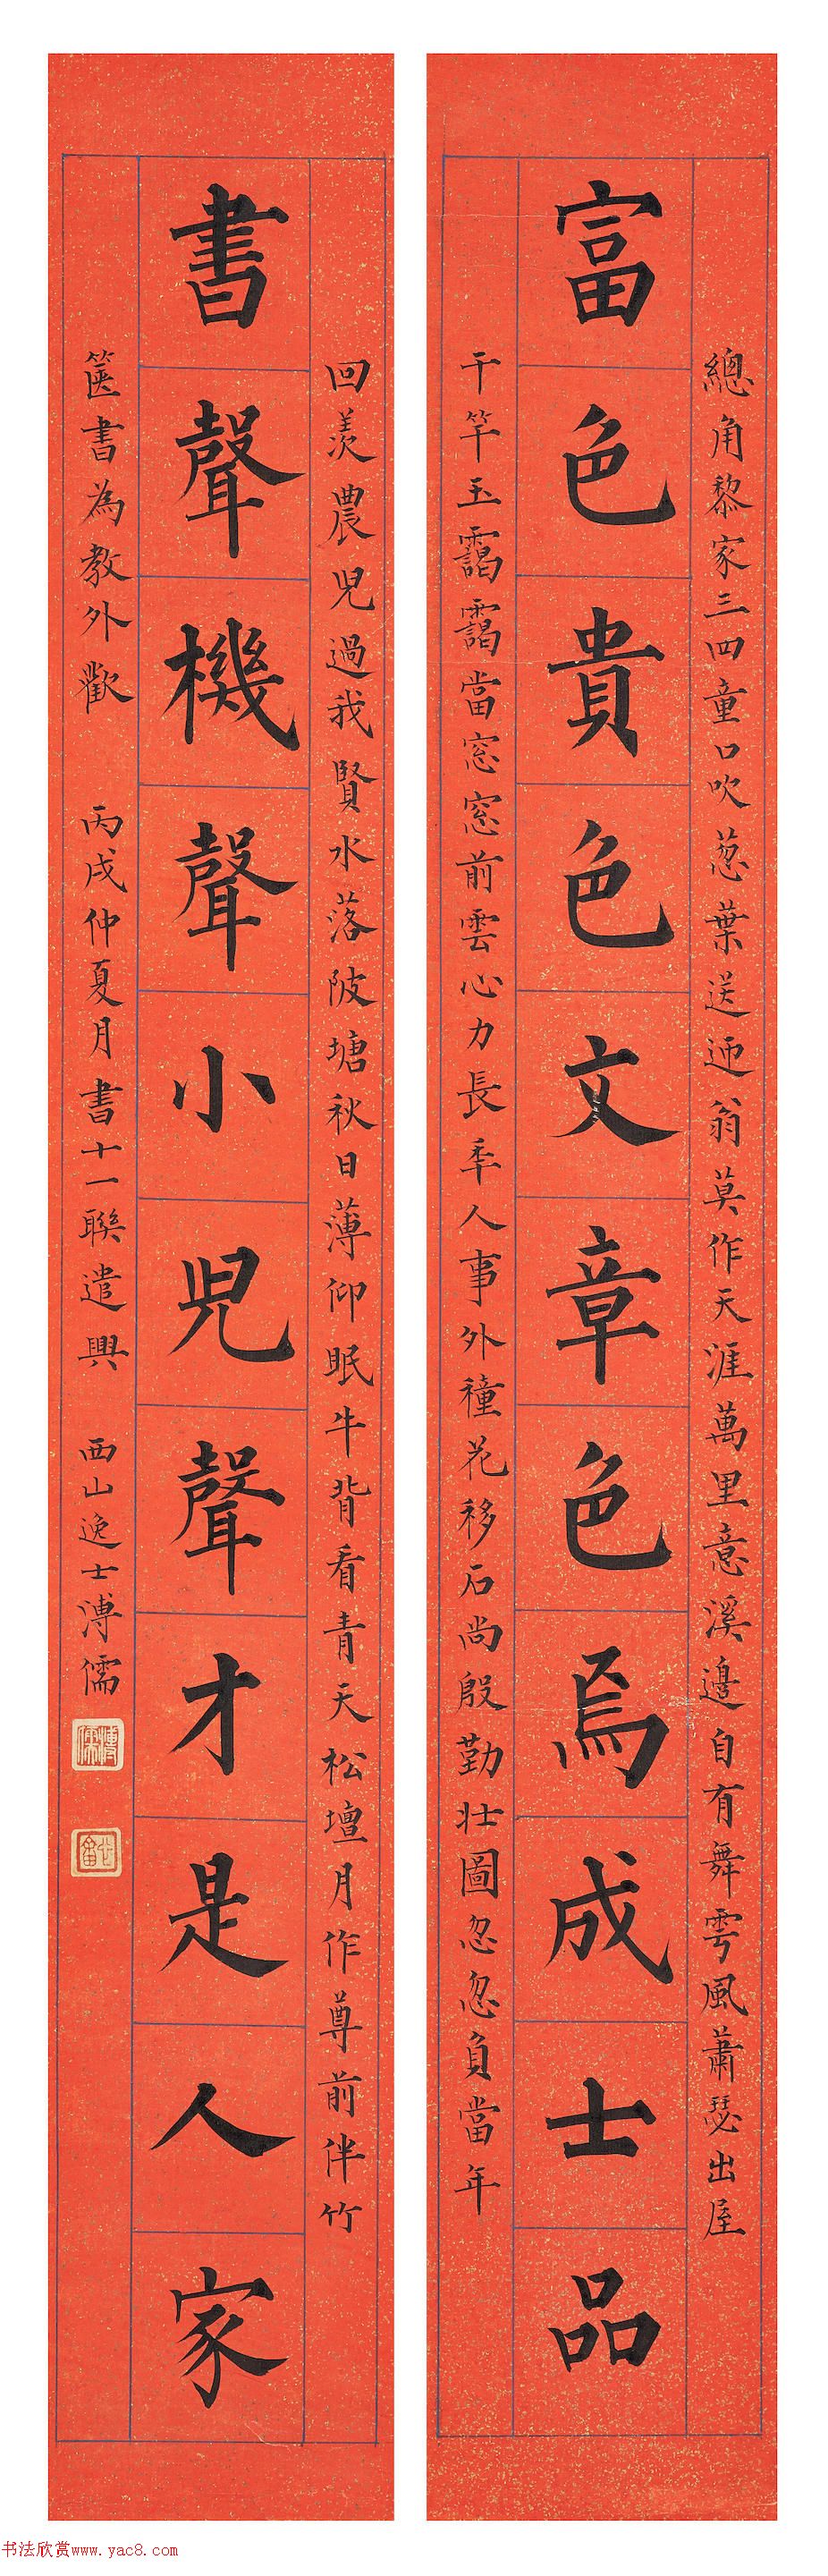 總角黎家三四童口吹蔥葉送迎翁莫作天涯萬里意溪邊自有舞雩風蕭瑟出屋
富色貴色文章色焉成士品
千竿玉靄靄當窓窓前雲心力長年人事外種花移石尚殷勤壯圖忽忽負當年
回羨農兒過我賢水落陂塘秋日薄仰眠牛背看青天松壇月作尊前伴竹
書聲機聲小兒聲才是人家
篋書為教外歡 丙戌仲夏月書十一聯遣興 西山逸士溥儒
溥儒
书法欣赏www.yac8.com